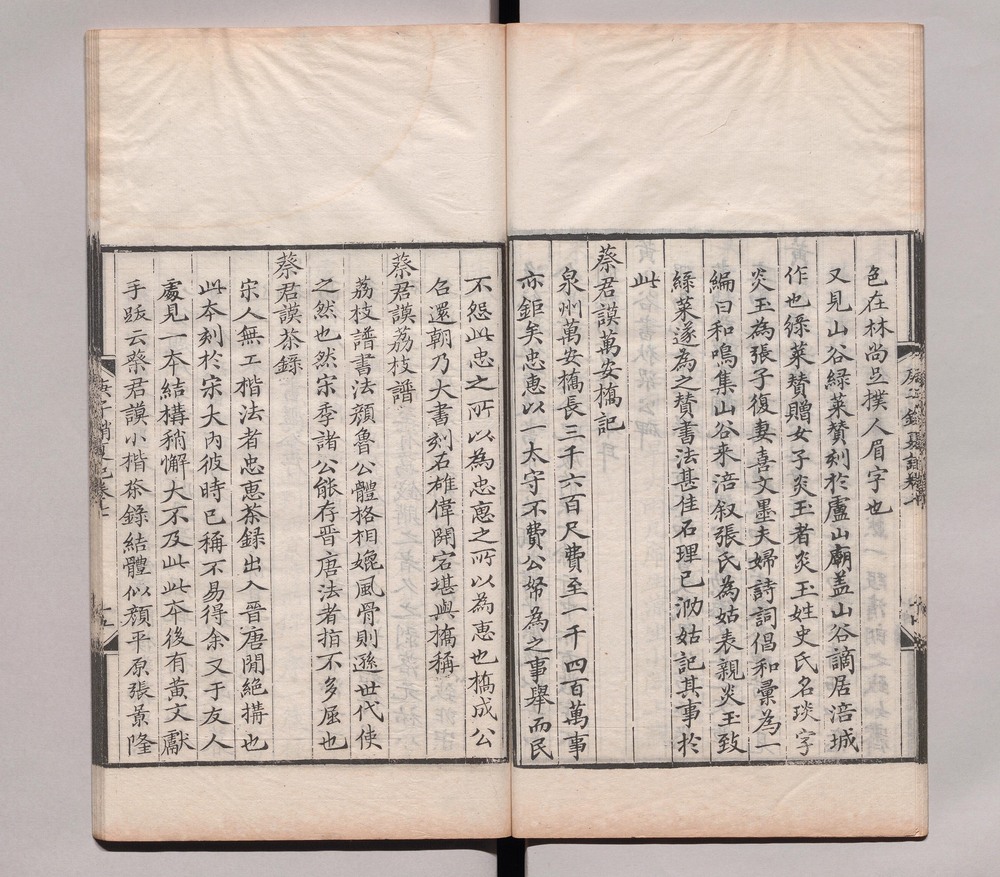 色在林尚足撲人眉宇也
又見山谷綠菜贊刻於盧山廟盖山谷謫居涪城
作也綠菜贊贈女子炎玉者炎玉姓史氏名琰字
炎玉為張子復妻喜文墨夫婦詩詞倡和彙為一
編曰和鳴集山谷来涪叙張氏為姑表親炎玉致
綠菜遂為之贊書法甚佳石理已泐姑記其事於
此
蔡君謨萬安橋記
泉州萬安橋長三千六百尺費至一千四百萬事
亦鉅矣忠惠以一太守不費公帑為之事舉而民
不怨此忠之所以為忠惠之所以為惠也橋成公
召還朝乃大書刻石雄偉閎宕堪與橋稱
蔡君謨荔枝譜
荔枝譜書法顔魯公體格相媲風骨則遜世代使
之然也然宋季諸公能存晉唐法者指不多屈也
蔡君謨茶録
宋人無工楷法者忠惠茶録出入晉唐閒絶搆也
此本刻於宋大内彼時已稱不易得余又于友人
處見一本結構稍懈大不及此此本後有黃文獻
手跋云蔡君謨小楷茶錄結體似顔平原張景隆
庚子銷夏記卷七
十五